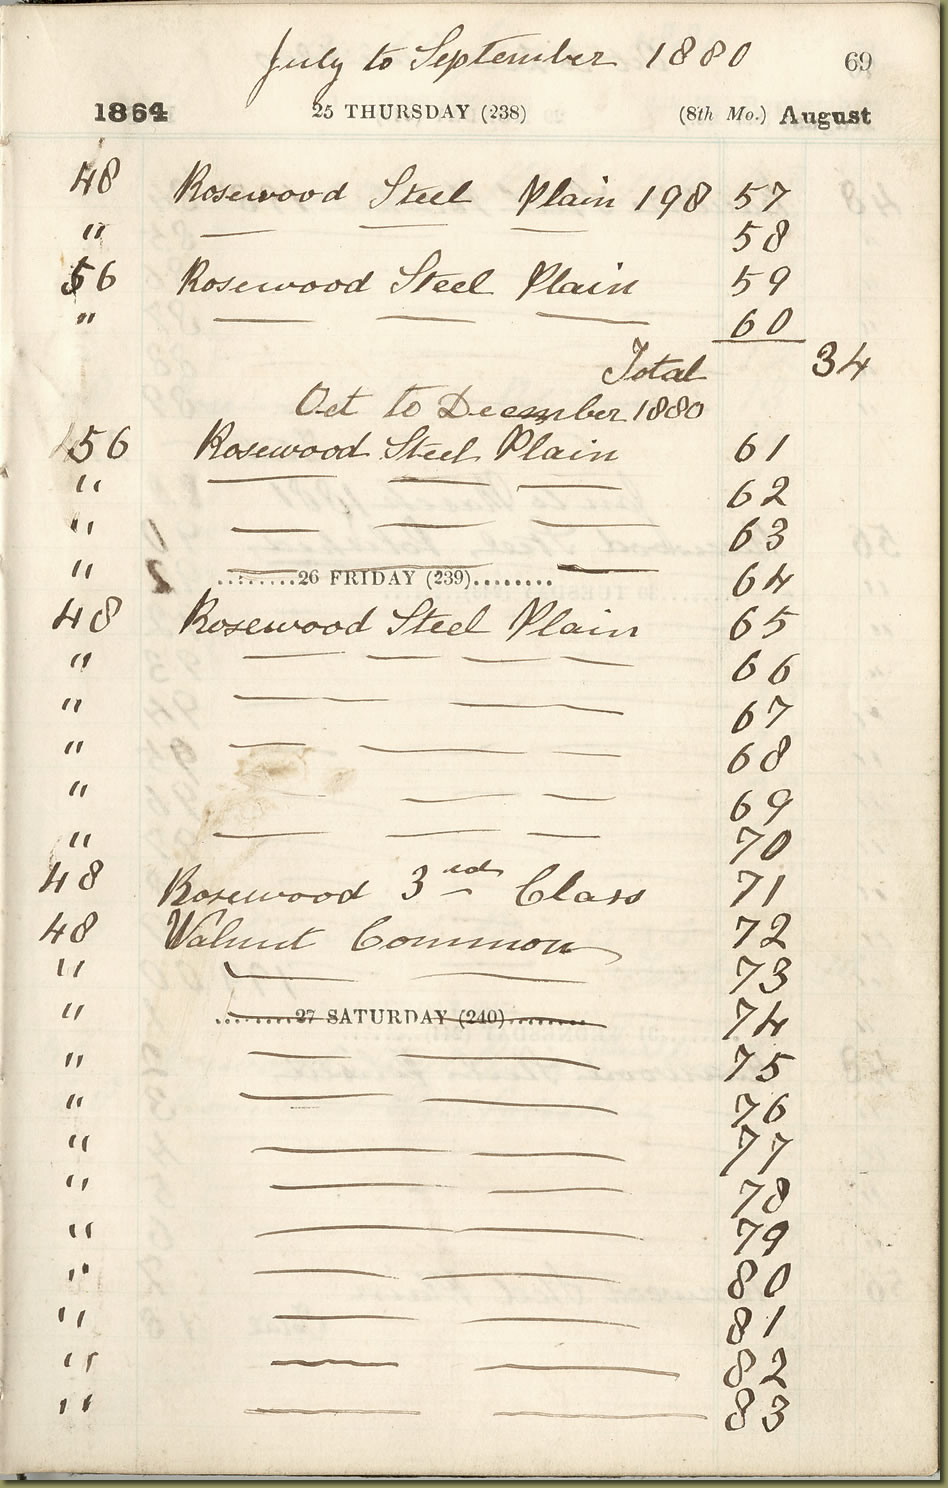 July to September 1880 69
1864 25 THURSDAY (238) (8th Mo.) August
48 Rosewood Steel Plain 198 57
" — — — 58
56 Rosewood Steel Plain 59
" — — — 60
Total 34
Oct to December 1880
56 Rosewood Steel Plain 61
" — — — 62
" — — — 63
" ........26 FRIDAY (239)........ — 64
48 Rosewood Steel Plain 65
" — — — — 66
" — — 67
" — — — 68
" — — 69
" — — — 70
48 Rosewood 3rd Class 71
48 Walnut Common 72
" — — 73
" ........27 SATURDAY (240)........ 74
" — — 75
" — — 76
" — — 77
" — — 78
" — — 79
" — — 80
" — — 81
" — — 82
" — — 83